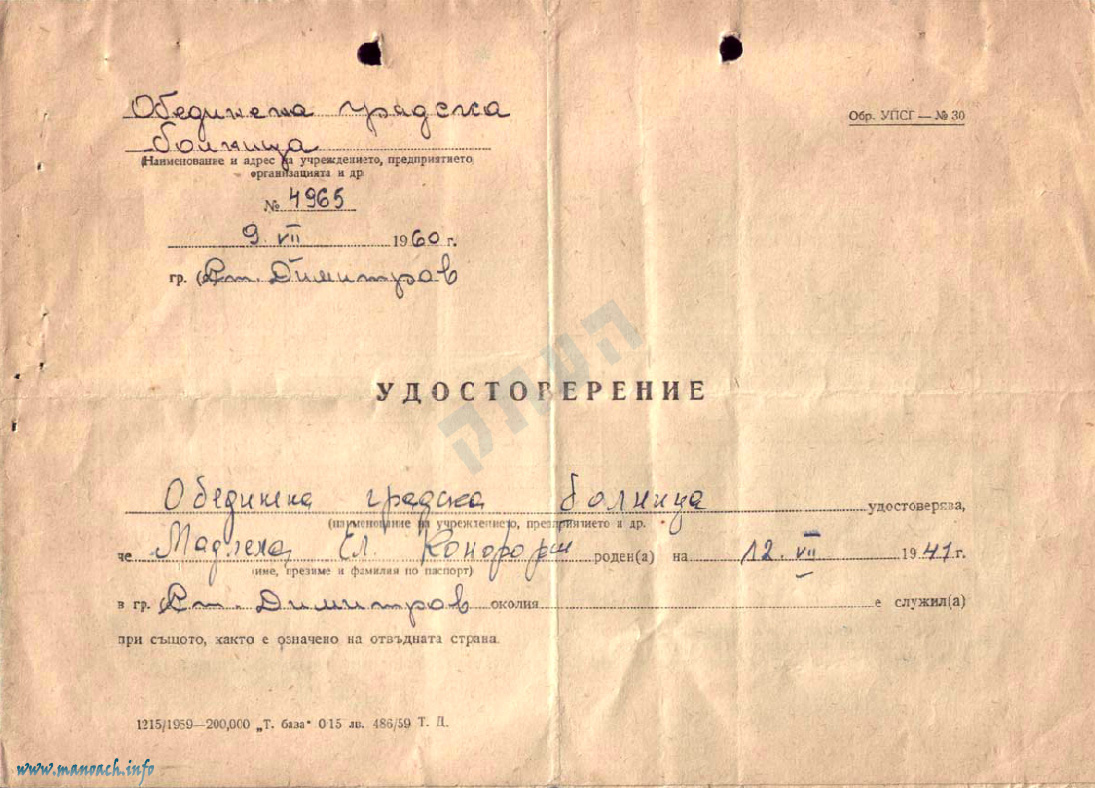 Обединена градска
болница
Обр. УПСГ — № 30
(Наименование и адрес на учреждението, предприятието
организацията и др
№ 4965
9. VII 1960 г.
гр. Ст. Димитров
העתק
УДОСТОВЕРЕНИЕ
Обединена градска болница удостоверява,
(наименование на учреждението, предприятието и др.
че Мадлена Ел. роден(а) на 12. VII 1941 г.
име, презиме и фамилия по паспорт)
в гр. Ст. Димитров околия е служил(а)
при същото, както е означено на отвъдната страна.
1215/1959—200,000 „Т. база" 015 лв. 486/59 Т. Д.
www.manoach.info